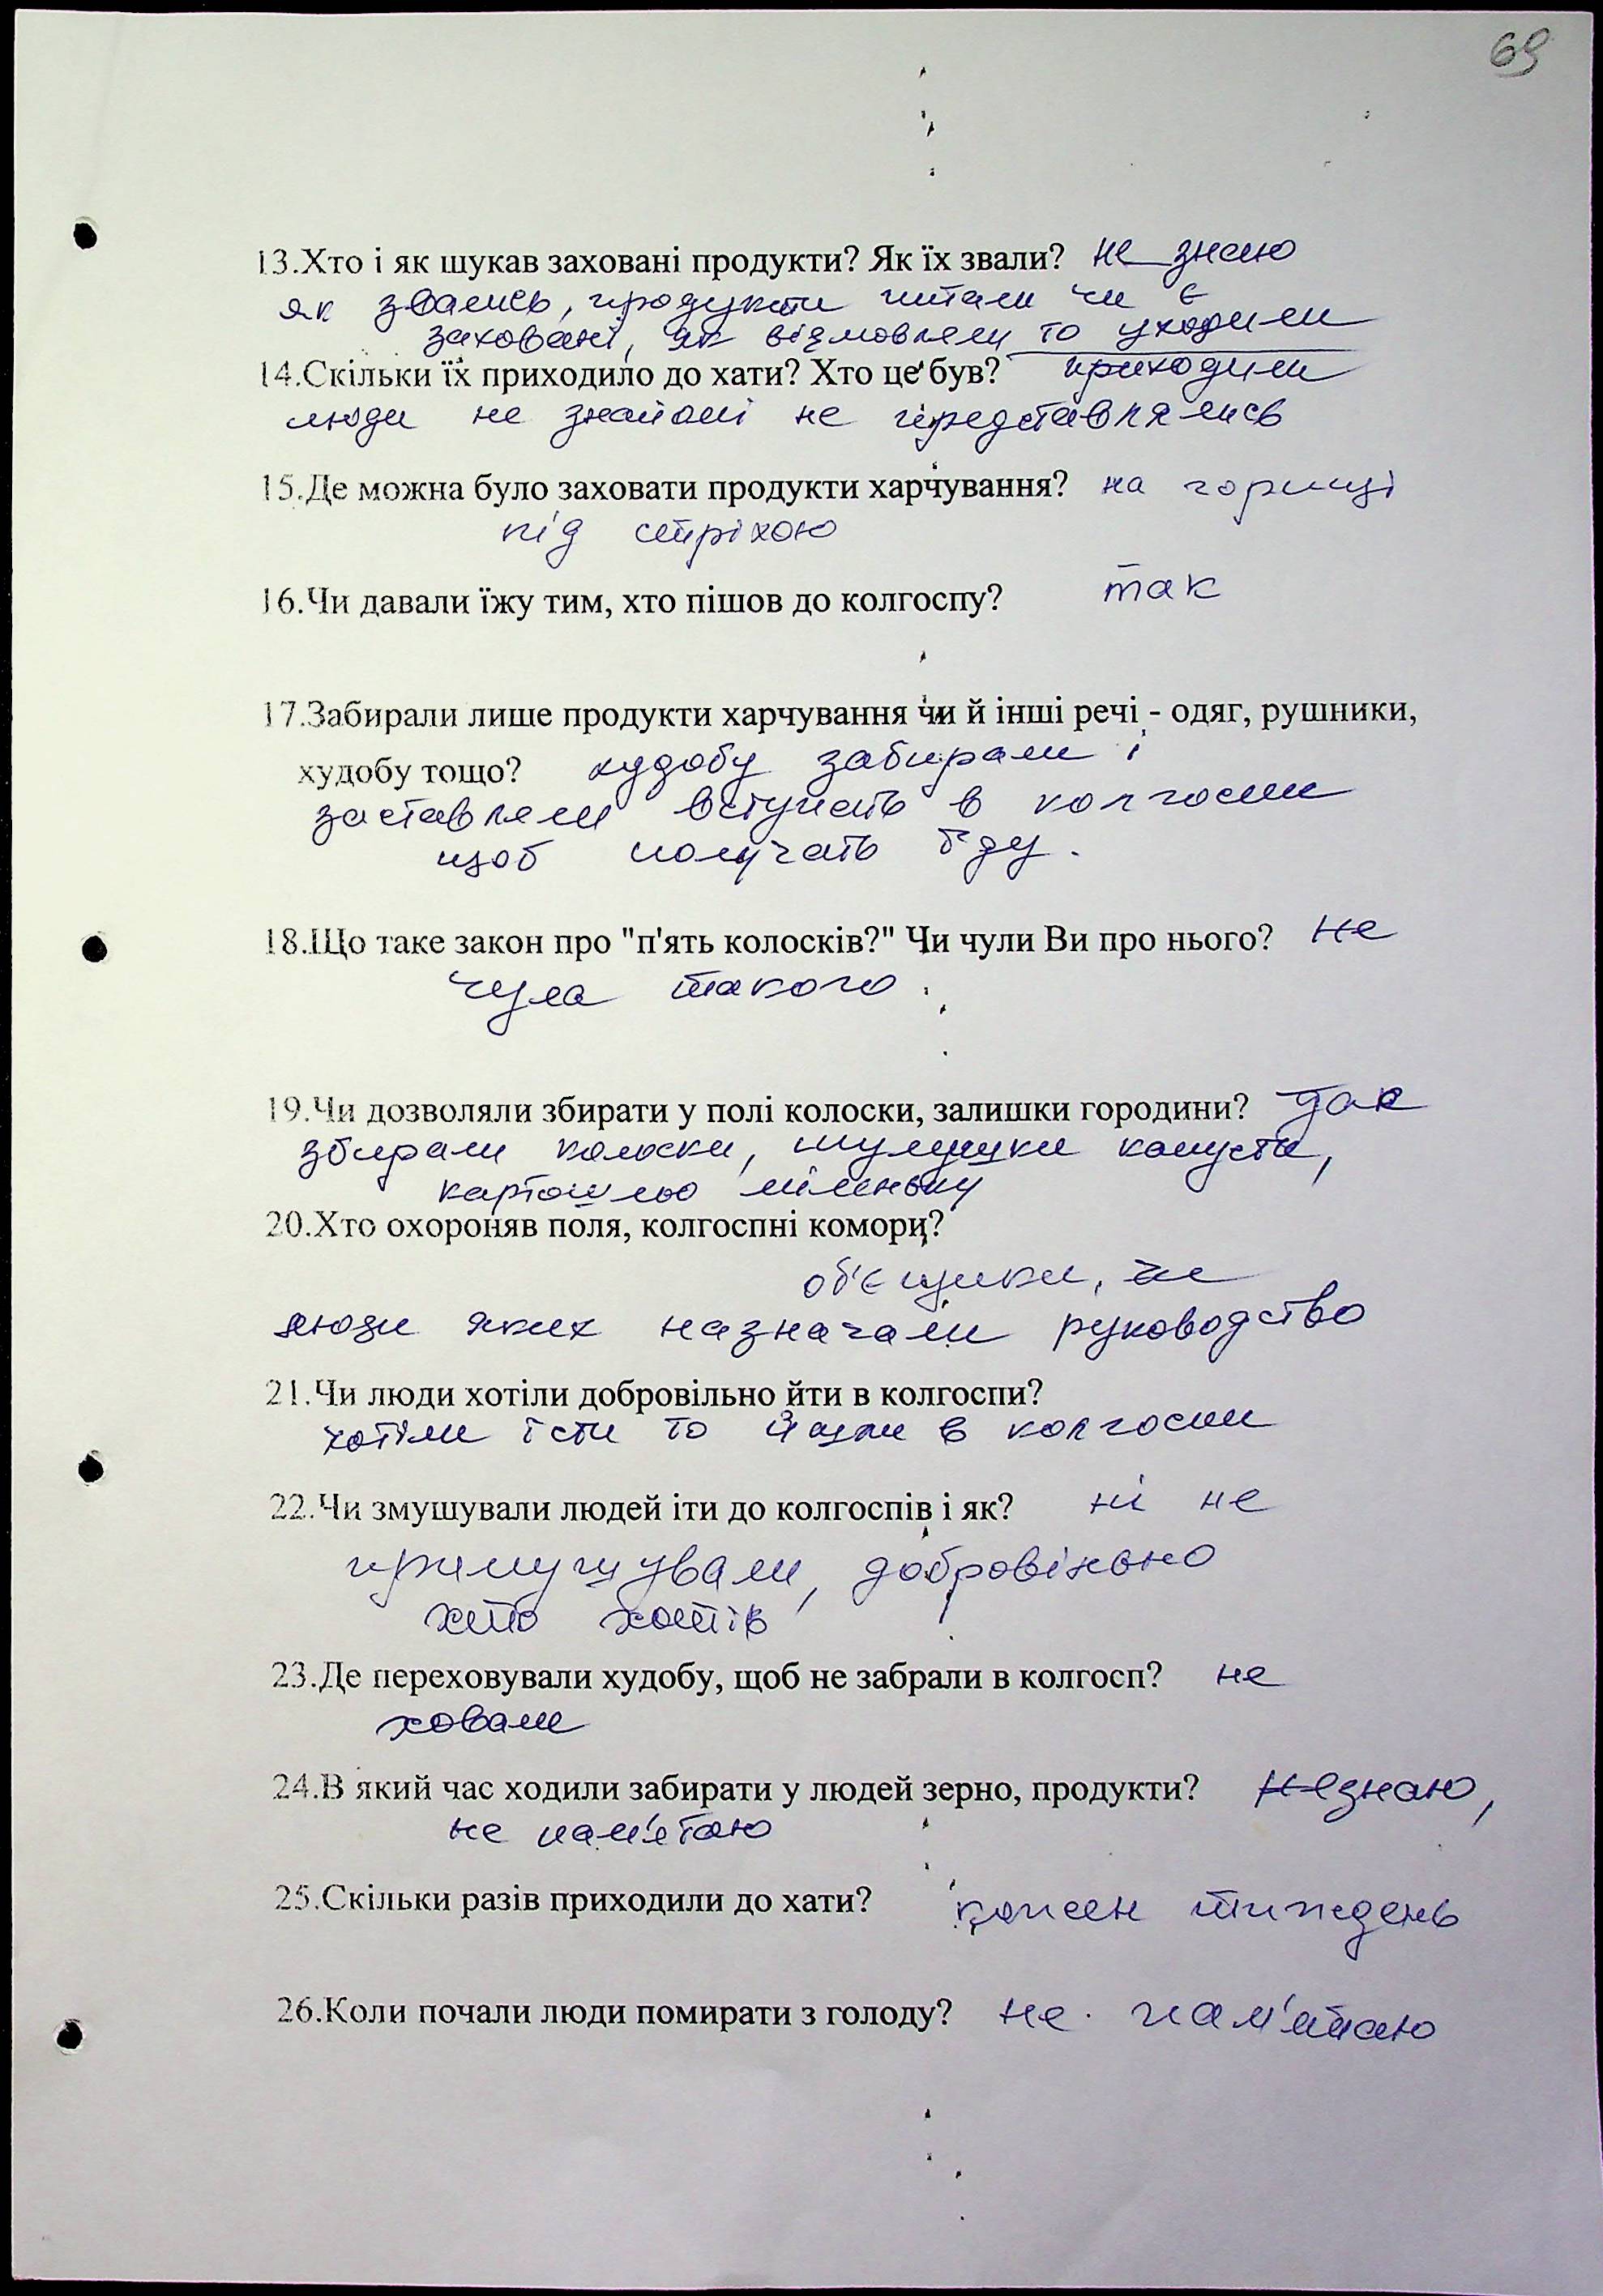 69
13.Хто і як шукав заховані продукти? Як їх звали? не знаю
як звались, продукти питали чи є
заховані, як відмовляли то уходили
14.Скільки їх приходило до хати? Хто це був? приходили
люди не знайомі не представлялись
15.Де можна було заховати продукти харчування? на горищі
під стріхою
16.Чи давали їжу тим, хто пішов до колгоспу? так
17.Забирали лише продукти харчування чи й інші речі - одяг, рушники,
худобу тощо? худобу забирали і
заставляли вступать в колгоспи
щоб получать їду.
18.Що таке закон про "п'ять колосків?" Чи чули Ви про нього? не
чула такого.
19.Чи дозволяли збирати у полі колоски, залишки городини? так
збирали колоски, шулушки капусти,
картошлю міленьку
20.Хто охороняв поля, колгоспні комори?
об'єщики, че
люди яких назначали руководство
21.Чи люди хотіли добровільно йти в колгоспи?
хотіли їсти то йшли в колгоспи
22.Чи змушували людей іти до колгоспів і як? ні не
примушували, добровільно
хто хотів
23.Де переховували худобу, щоб не забрали в колгосп? не
ховали
24.В який час ходили забирати у людей зерно, продукти? незнаю,
не пам'ятаю
25.Скільки разів приходили до хати? кожен тиждень
26.Коли почали люди помирати з голоду? не пам'ятаю